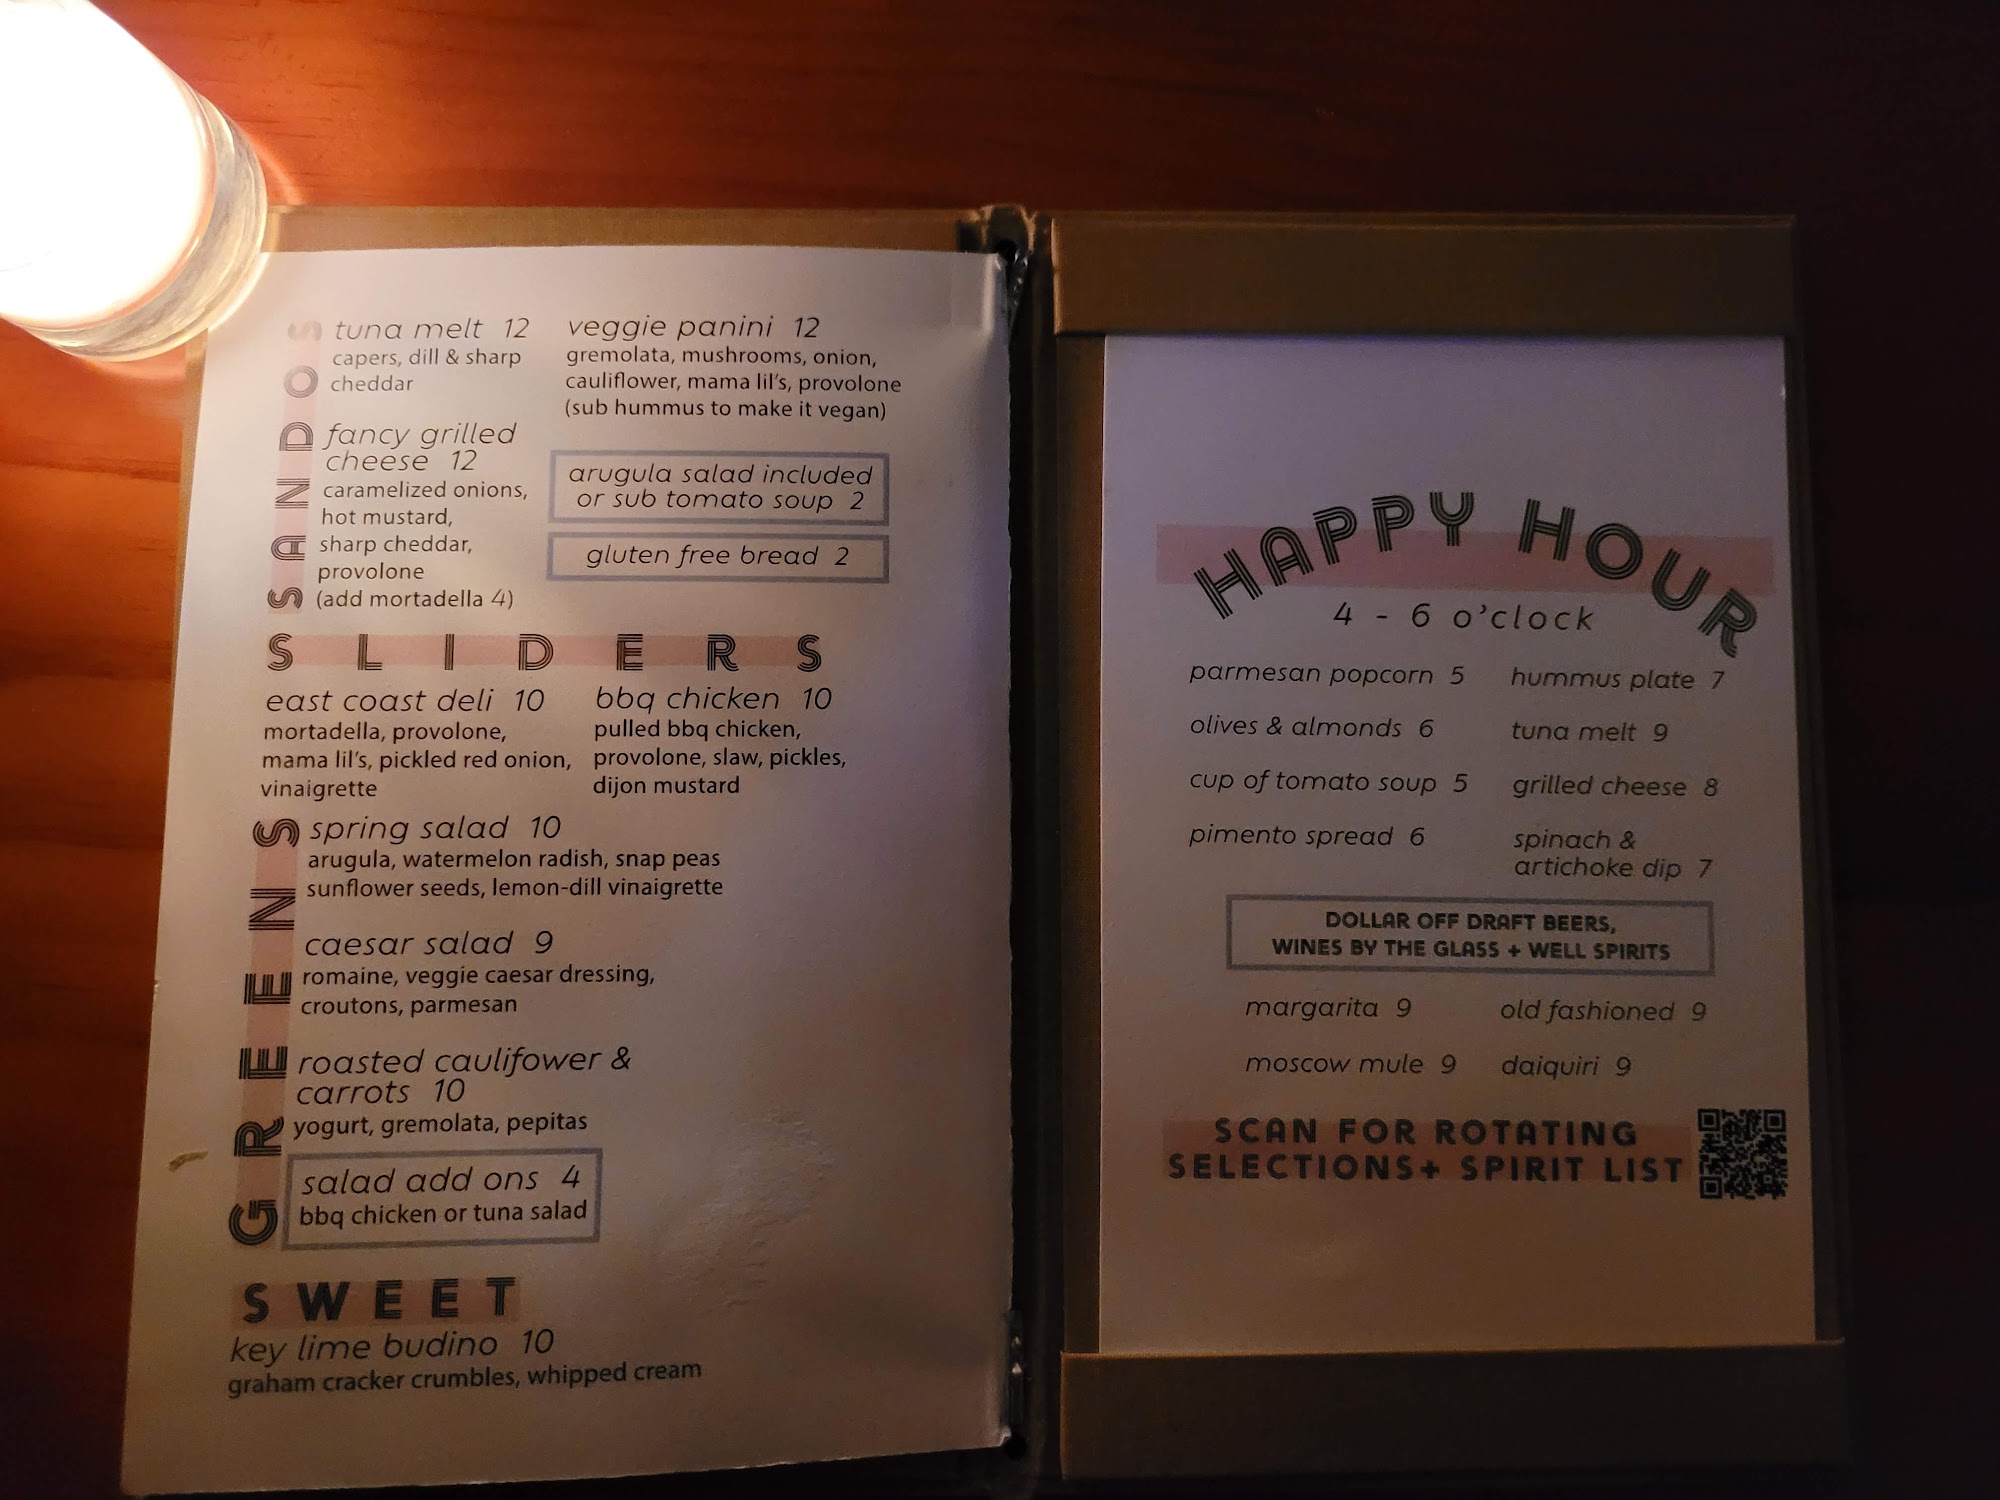 SANDOS
tuna melt 12
capers, dill & sharp
cheddar
fancy grilled
cheese 12
caramelized onions,
hot mustard,
sharp cheddar,
provolone
(add mortadella 4)
veggie panini 12
gremolata, mushrooms, onion,
cauliflower, mama lil's, provolone
(sub hummus to make it vegan)
arugula salad included
or sub tomato soup 2
gluten free bread 2
SLIDERS
east coast deli 10
mortadella, provolone,
mama lil's, pickled red onion,
vinaigrette
bbq chicken 10
pulled bbq chicken,
provolone, slaw, pickles,
dijon mustard
GREENS
spring salad 10
arugula, watermelon radish, snap peas
sunflower seeds, lemon-dill vinaigrette
caesar salad 9
romaine, veggie caesar dressing,
croutons, parmesan
roasted caulifower &
carrots 10
yogurt, gremolata, pepitas
salad add ons 4
bbq chicken or tuna salad
SWEET
key lime budino 10
graham cracker crumbles, whipped cream
HAPPY HOUR
4 - 6 o'clock
parmesan popcorn 5
olives & almonds 6
cup of tomato soup 5
pimento spread 6
hummus plate 7
tuna melt 9
grilled cheese 8
spinach &
artichoke dip 7
DOLLAR OFF DRAFT BEERS,
WINES BY THE GLASS + WELL SPIRITS
margarita 9
moscow mule 9
old fashioned 9
daiquiri 9
SCAN FOR ROTATING
SELECTIONS+ SPIRIT LIST